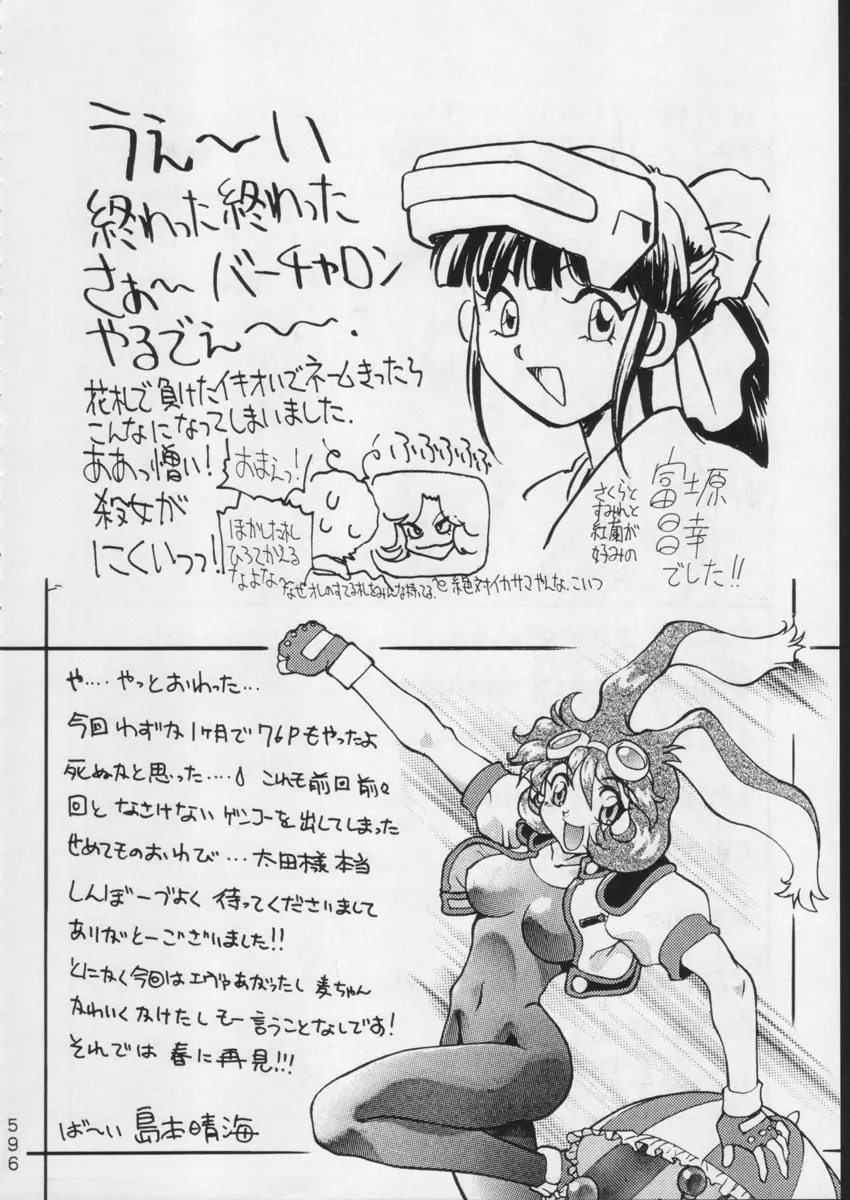 うえ〜い
終わった終わった
さぁ〜バーチャロン
やるでぇ〜〜.
花札で負けたイキオいでネームきったら
こんなになってしまいました.
ああっ憎い!
殺女が
にくいっっ!
おまえっ!
ほかした札
ひろてかえる
なよな〜
ふふふふふ
なぜオレのすてる札をみんな持ってる.
絶対イカサマやんな.こいつ
さくらと
すみれと
紅蘭が
好みの
富士原
昌幸
でした!!
や....やっとおわった...
今回わずか1ヶ月で76Pもやったよ
死ぬかと思った.... これも前回前々
回と なさけない ゲンコーを出してしまった
せめてものおわび... 太田様本当
しんぼーづよく 待ってくださいまして
ありがとーございました!!
とにかく今回はエヴァあがったし 麦ちゃん
かわいくかけたし もー言うことなしです!
それでは 春に再見!!!
ば〜い 島本晴海
596